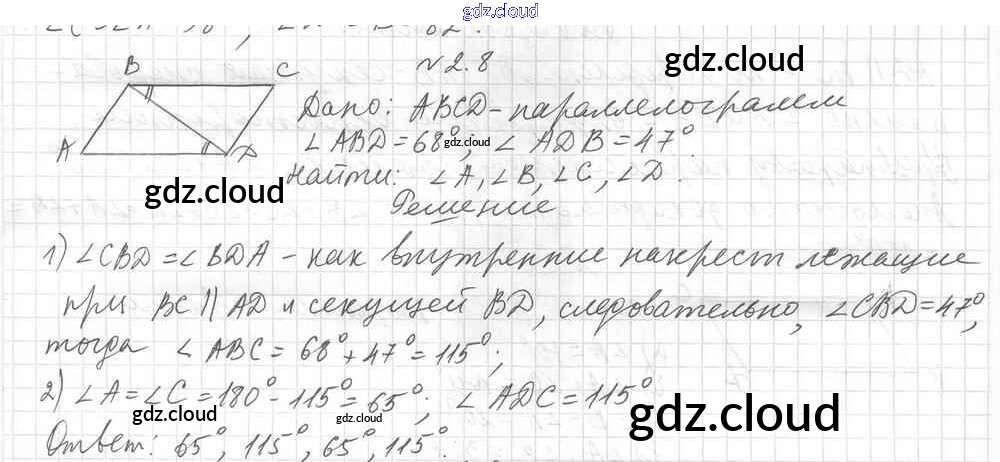 gdz.cloud
№2.8
gdz.cloud
B C
Дано: ABCD - параллелограмм
∠ABD = 68°; gdz.cloud ∠ADB = 47°.
A D
Найти: ∠A, ∠B, ∠C, ∠D.
gdz.cloud
Решение
1) ∠CBD = ∠BDA - как внутренние накрест лежащие
при BC || AD и секущей BD, следовательно, ∠CBD = 47°,
тогда ∠ABC = 68° + 47° = 115°;
2) ∠A = ∠C = 180° - 115° = 65°; ∠ADC = 115°
gdz.cloud gdz.cloud gdz.cloud
Ответ: 65°, 115°, 65°, 115°.